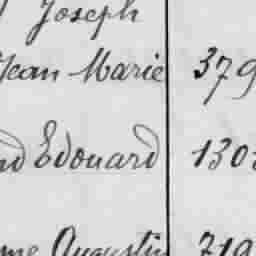 Joseph
Jean Marie 379
Edouard 130
Augustin 719